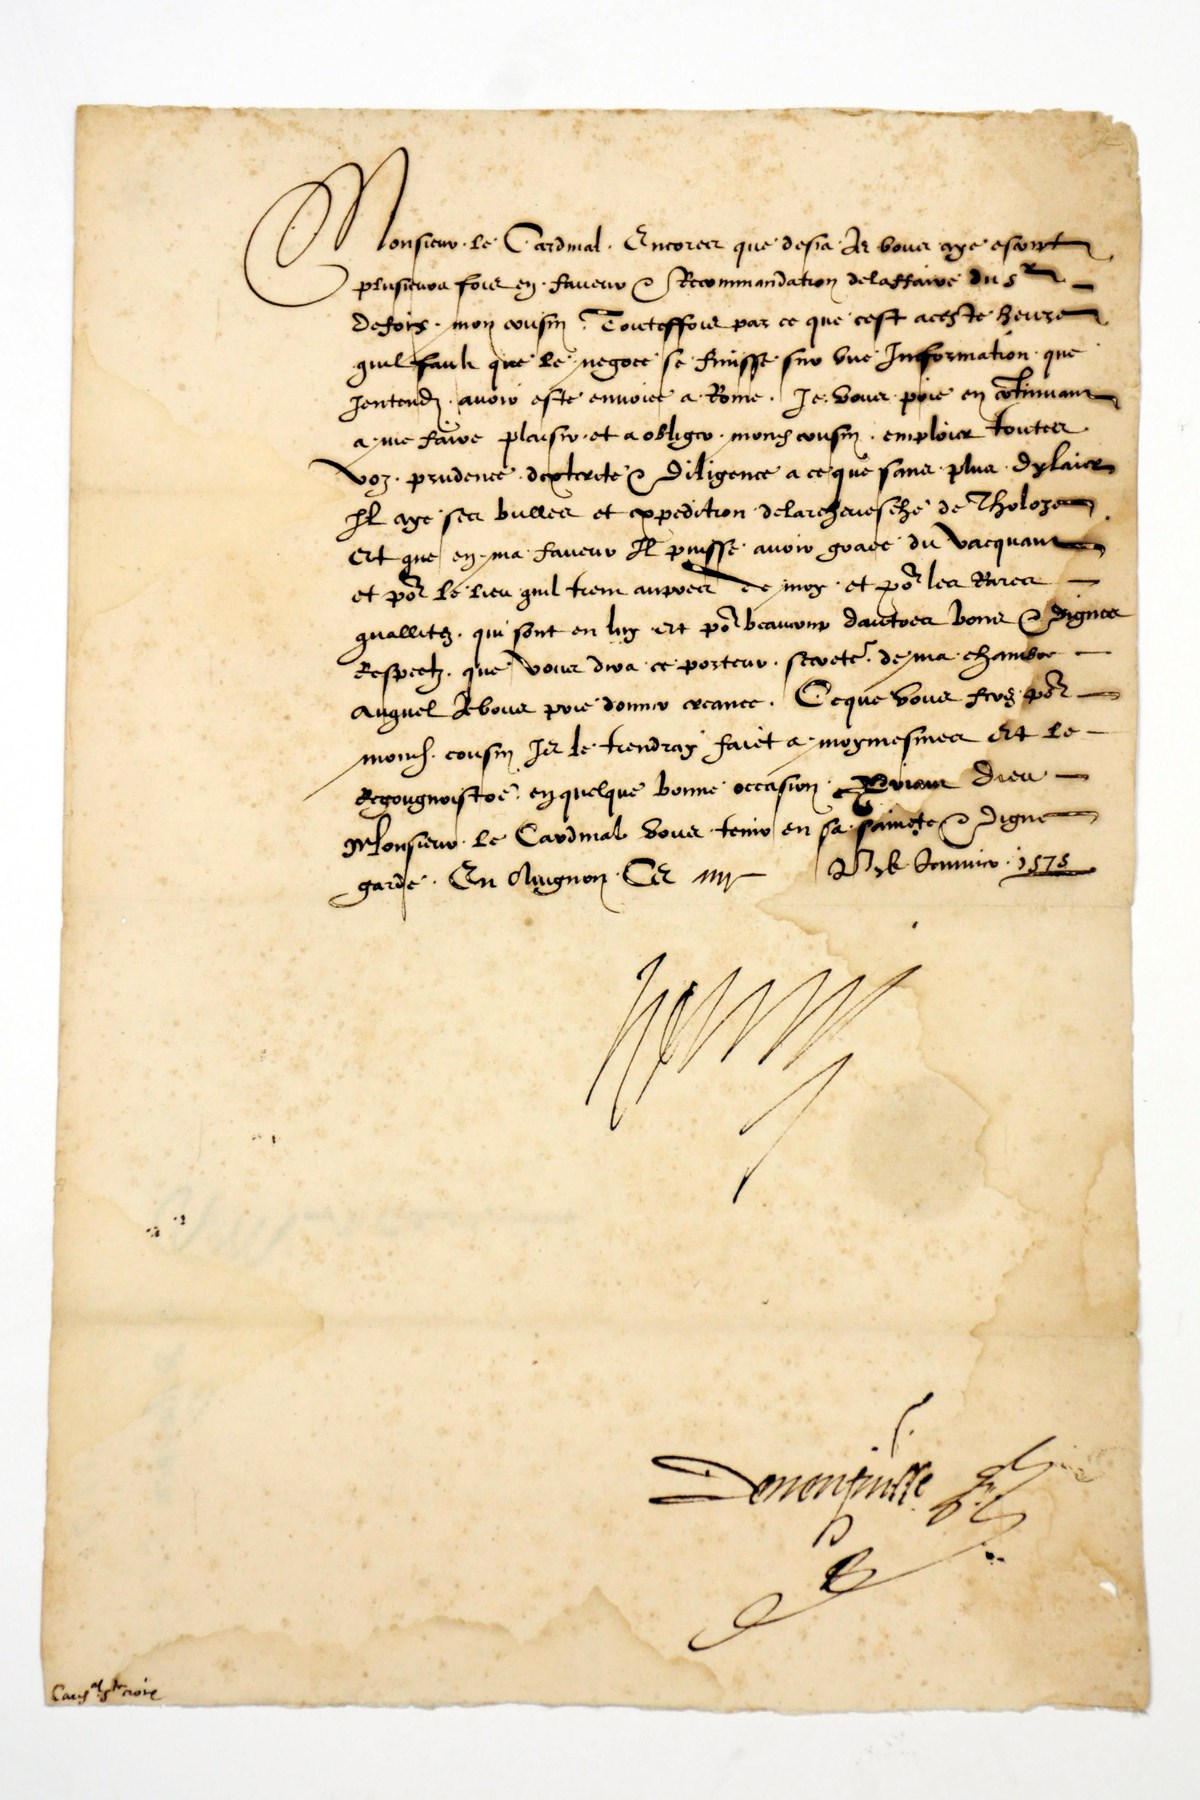 Monsieur le Cardinal. Encores que desia Je vous aye escript
plusieurs fois en faveur & Recommandation delaffaire du Sr
defoix mon cousin Touteffois par ce que cest aceste heure
quil fault que le negoce se finisse sur une Information que
Jentendz avoir esté envoiee a Rome. Je vous prie en continuant
a me faire plaisir et a obliger mond cousin emploier toutes
voz prudence dexterité & diligence a ce que sans plus dylaier
Il aye ses bulles et expedition delarchevesché de Tholoze
Et que en ma faveur Il puisse avoir grace du vacquant
et por le lieu quil tient aupres de moy et por les Rares
quallitez qui sont en luy Et por beaucoup dautres bons & dignes
Respectz que vous dira ce porteur secrete.r de ma chambre
Auquel Je vous prie donner creance. Ce que vous ferez por
mond. cousin Je le tiendray faict a moymesmes Et le
Recougnoistré en quelque bonne occasion Priant Dieu
Monsieur le Cardinal vous tenir en sa saincte & digne
garde. En Avignon Ce Janvier 1575
Henry
Deneufville
Cardal Ste croix